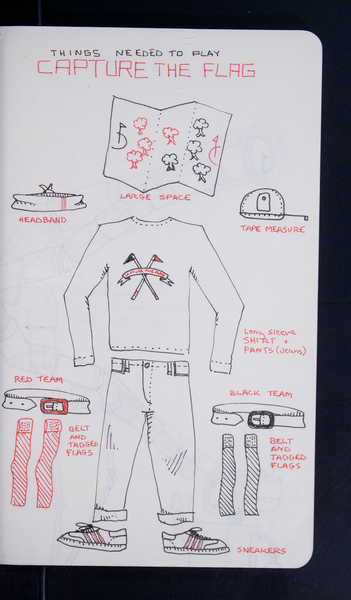 THINGS NEEDED TO PLAY
CAPTURE THE FLAG
LARGE SPACE
HEADBAND
TAPE MEASURE
CAPTURE THE FLAG
Long sleeve
SHIRT +
PANTS (jeans)
RED TEAM
BELT
AND
TAGGED
FLAGS
BLACK TEAM
BELT
AND
TAGGED
FLAGS
SNEAKERS